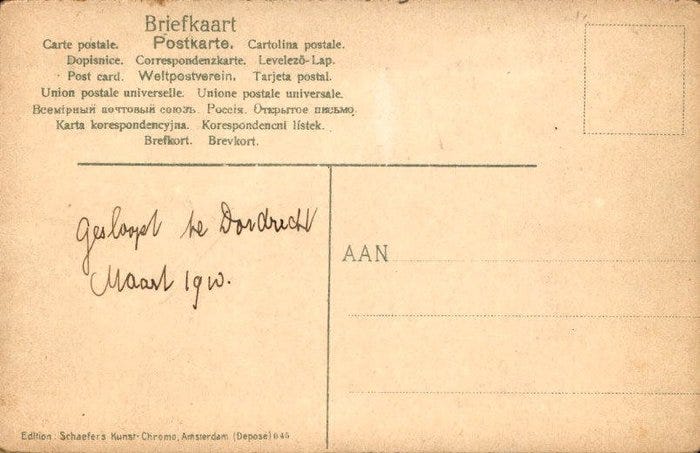 Briefkaart
Carte postale. Postkarte. Cartolina postale.
Dopisnice. Correspondenzkarte. Levelező-Lap.
Post card. Weltpostverein. Tarjeta postal.
Union postale universelle. Unione postale universale.
Всемірный почтовый союзъ. Россія. Открытое письмо.
Karta korespondencyjna. Korespondencni lístek.
Brefkort. Brevkort.
Gesloopt te Dordrecht
Maart 1910.
AAN
Edition: Schaefer's Kunst-Chromo, Amsterdam (Depose) 645